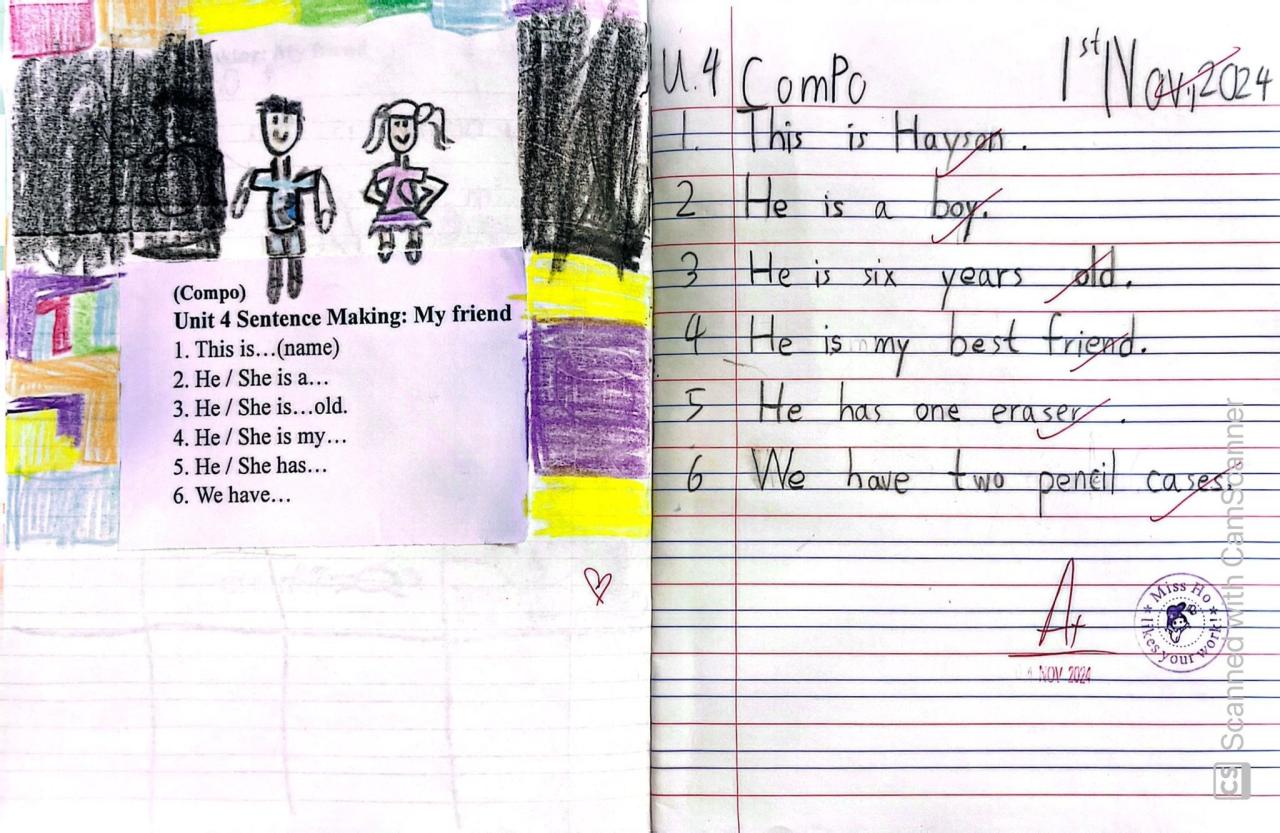 (Compo)
Unit 4 Sentence Making: My friend
1. This is…(name)
2. He / She is a…
3. He / She is…old.
4. He / She is my…
5. He / She has…
6. We have…
U.4 Compo 1st Nov, 2024
1. This is Hayson.
2 He is a boy.
3 He is six years old.
4 He is my best friend.
5 He has one eraser.
6 We have two pencil cases.
A+
NOV 2024
Miss Ho likes your work!
CS Scanned with CamScanner